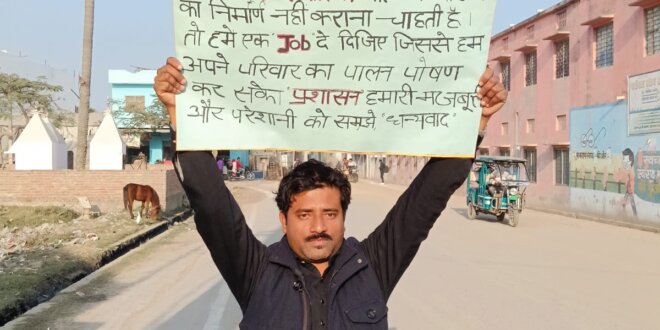 का निर्माण नही कराना -चाहती है।
तो हमे एक "Job" दे दिजिए जिससे हम
अपने परिवार का पालन पोषण
कर सके। "प्रशासन हमारी-मजबूरी
और परेशानी को समझे "धन्यवाद"